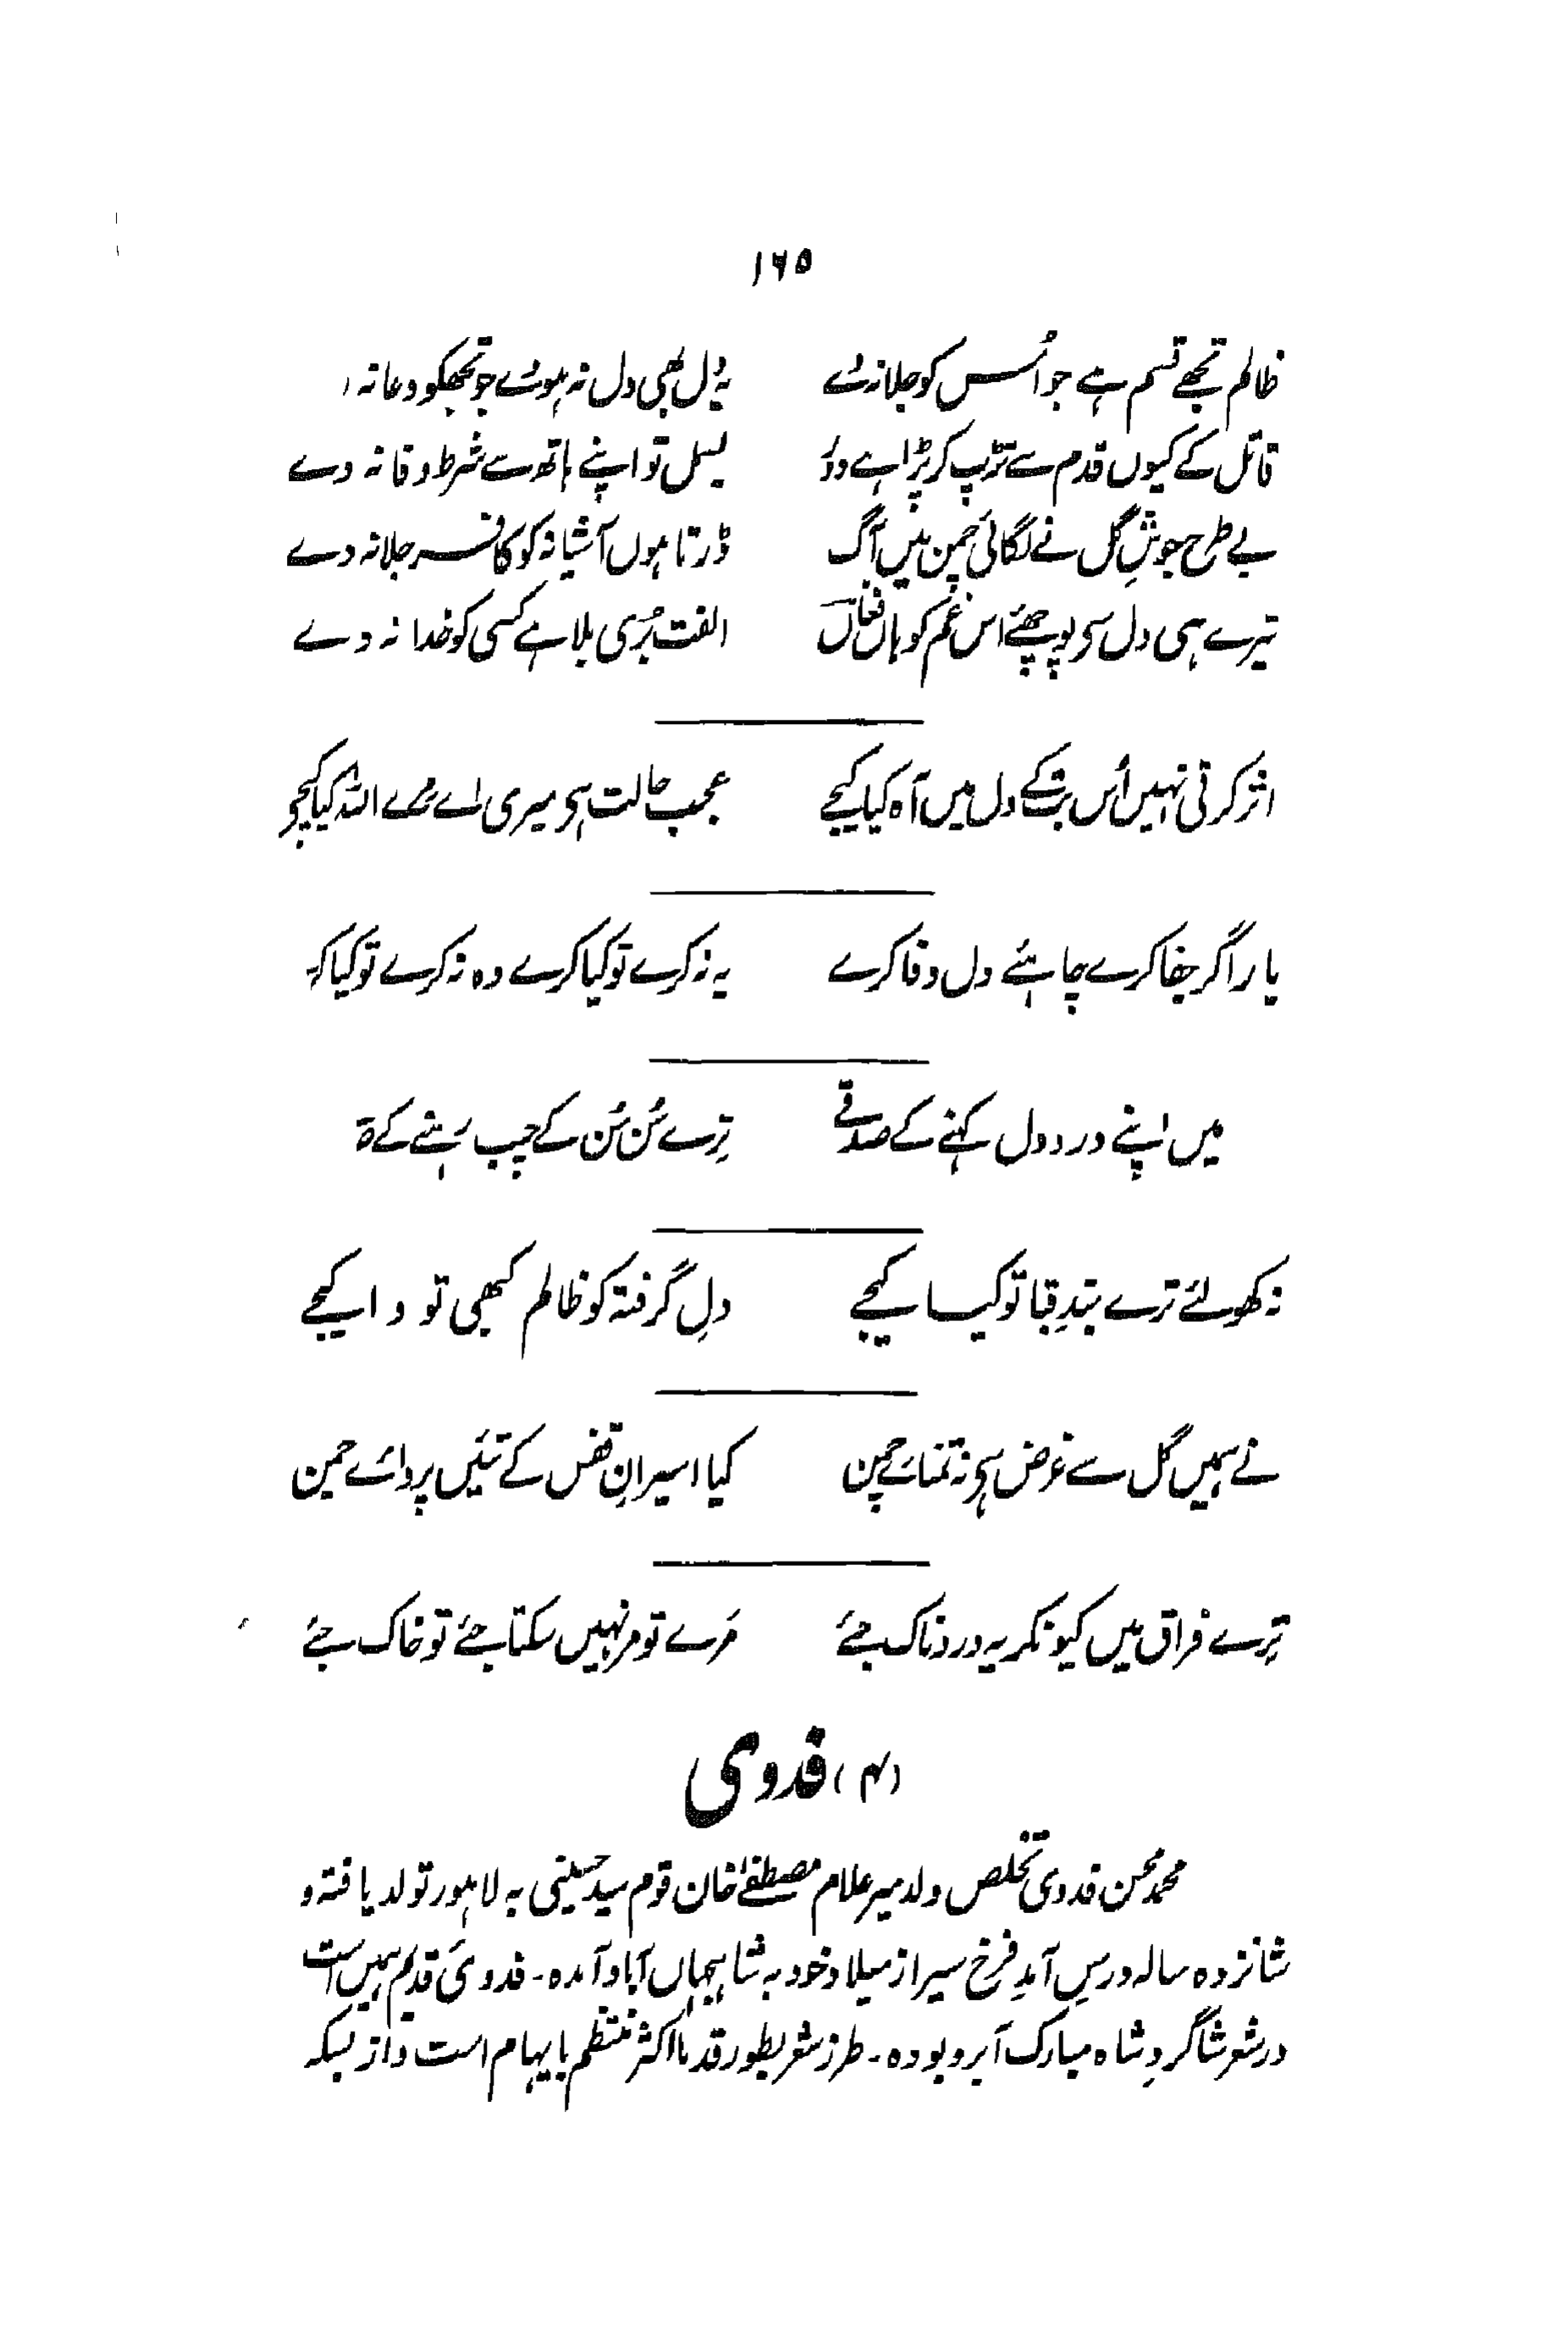 ۱۶۵
ظالم تجھے قسم ہے جو اُس کو جلا نہ دے یہ دل بھی دل نہ ہوئے جو تجھکو دعا نہ
قاتل کے کیوں قدم سے تڑپ کر پڑا ہے دور بسمل تو اپنے ہاتھ سے شرط وفا نہ دے
بے طرح جوشِ گل نے لگائی چمن میں آگ ڈرتا ہوں آشیانہ کو کافر جلا نہ دے
تیرے ہی دل سی پوچھئے اس غم کو ہاں فغاں الفت بُری بلا ہے کسی کو خدا نہ دے
اثر کرتی نہیں اُس بت کے دل میں آہ کیا کیجے عجب حالت ہی میری اے مرے اللہ کیا کیجی
یار اگر جفا کرے چاہئے دل وفا کرے یہ نہ کرے تو کیا کرے وہ نہ کرے تو کیا کر
میں اپنے درد دل کہنے کے صدقے ترے سُن سُن کے چپ رہنے کے
نہ کھولئے ترے بندِ قبا تو کیا کیجے دلِ گرفتہ کو ظالم کبھی تو وا کیجے
نے ہمیں گل سے غرض ہی نہ تمنائے چمن کیا اسیرانِ قفس کے تئیں پروائے چمن
تِرے فراق میں کیونکر یہ دردناک جئے مَرے تو مر نہیں سکتا جئے تو خاک جئے
(۴) فدوی
محمد محسن فدوی تخلص ولد میر غلام مصطفےٰ خان قوم سید حسینی بہ لاہور تولد یافتہ و
شانزدہ سالہ در سر آمدِ فرخ سیر از میلاد خود بہ شاہجہاں آباد آمدہ۔ فدویٔ قدیم ہمیں است
در شعر شاگردِ شاہ مبارک آبرو بودہ۔ طرز شعر بطور قدما اکثر منتظم بایہام است و از بسکہ